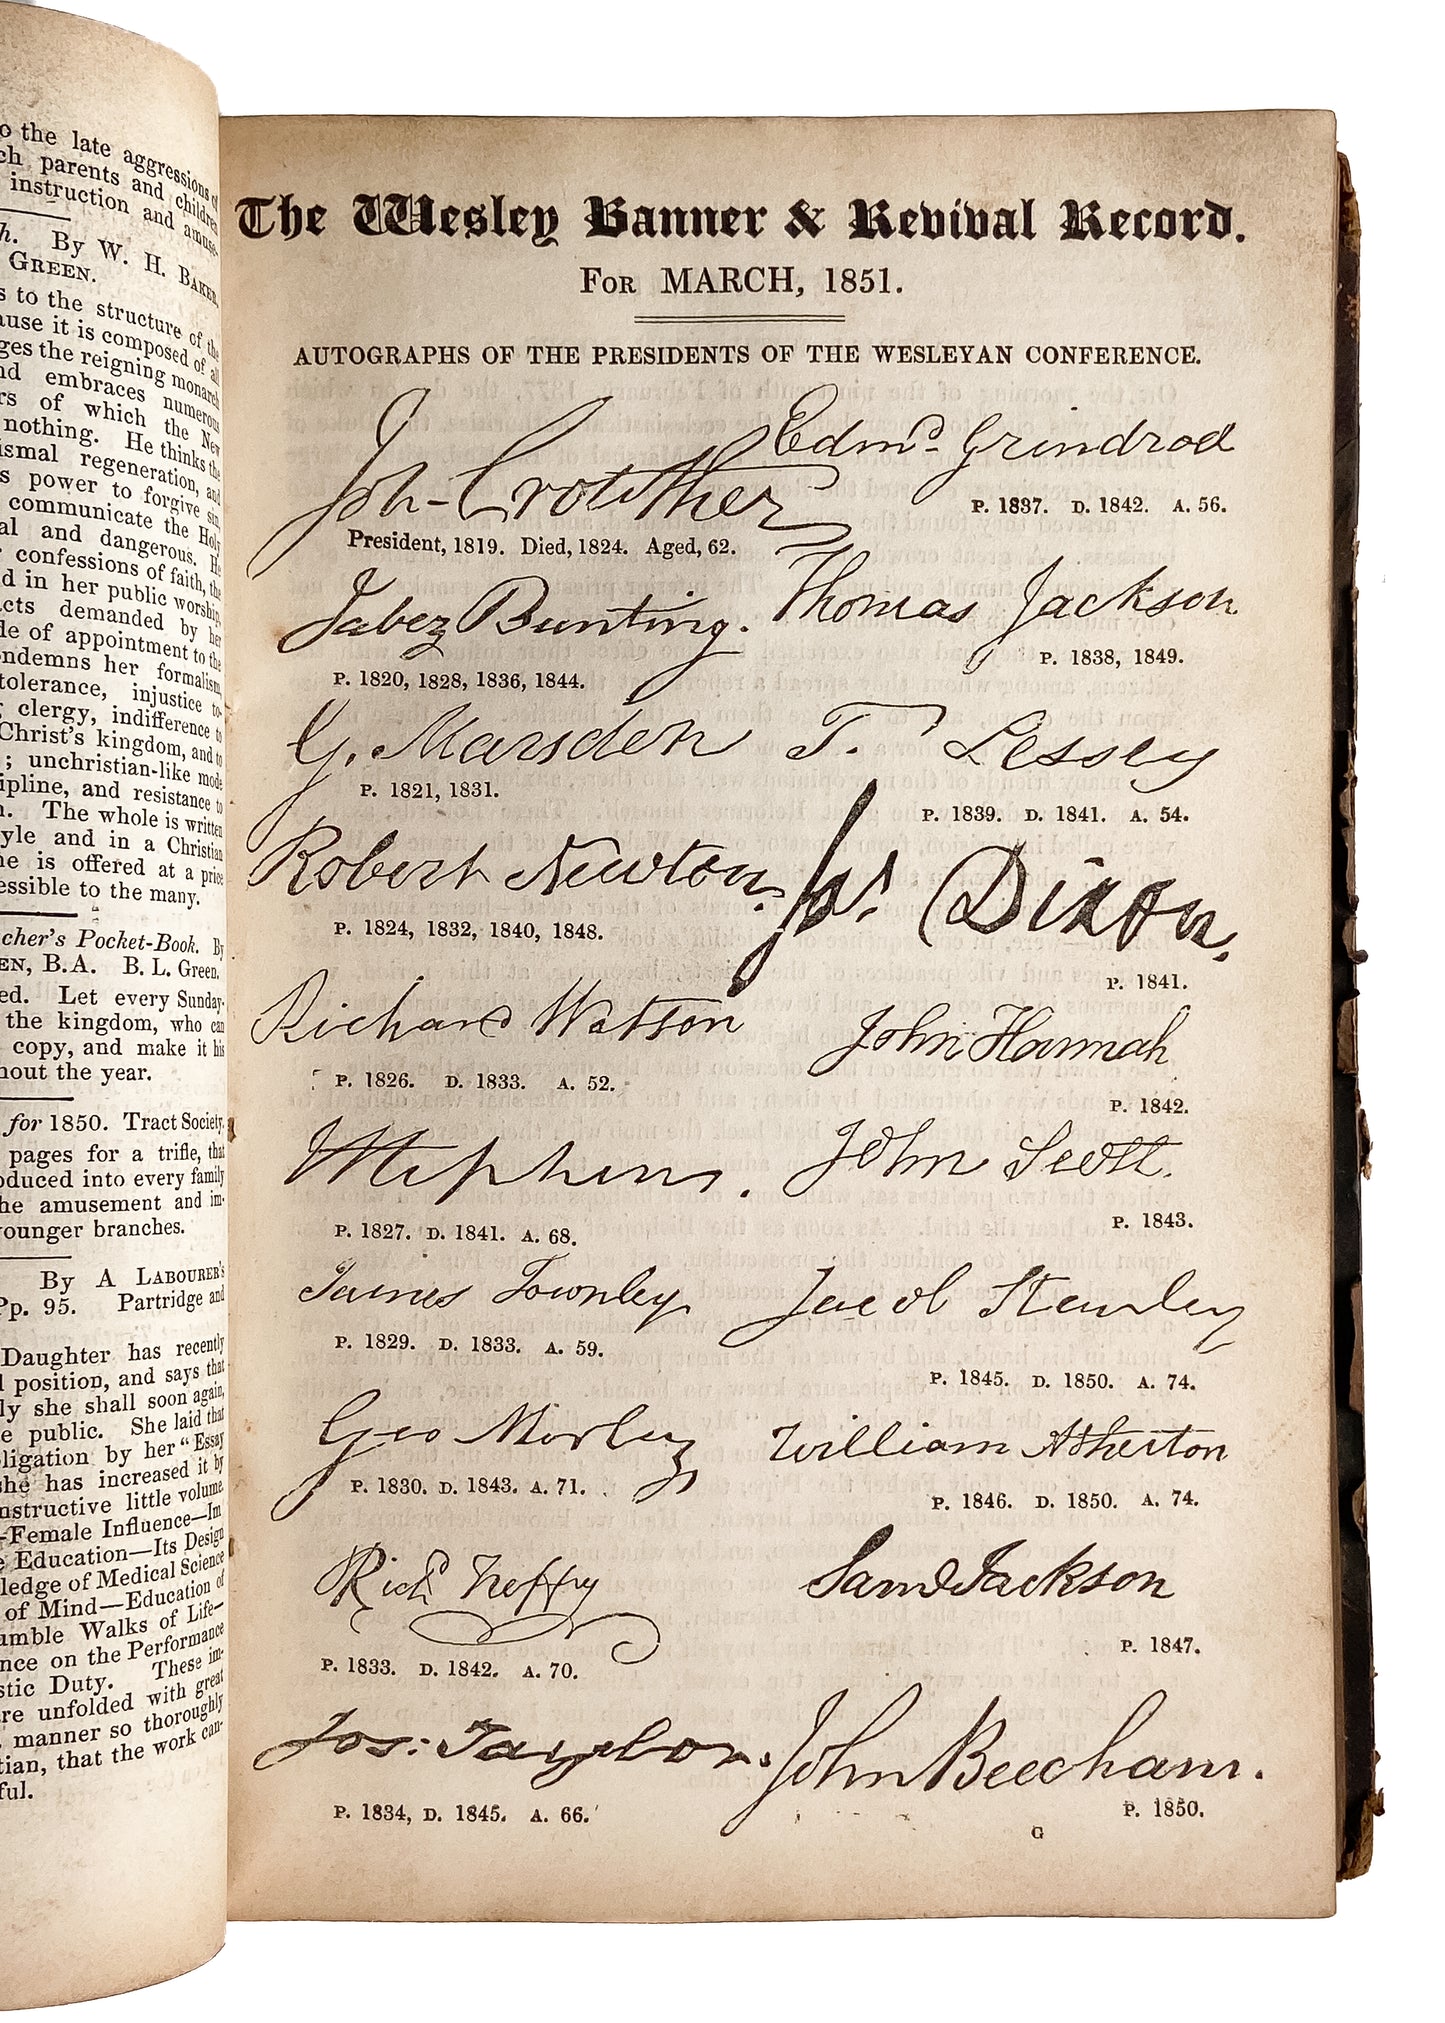 o the late aggressions of
ch parents and children
instruction and amuse-
h. By W. H. BAKER,
GREEN.
s to the structure of the
ause it is composed of all
ges the reigning monarch
nd embraces numerous
rs of which the New
nothing. He thinks the
ismal regeneration, and
s power to forgive sin,
communicate the Holy
al and dangerous. He
confessions of faith, the
d in her public worship,
cts demanded by her
de of appointment to the
ondemns her formalism,
tolerance, injustice to-
clergy, indifference to
Christ's kingdom, and to
; unchristian-like mode
ipline, and resistance to
n. The whole is written
yle and in a Christian
ne is offered at a price
essible to the many.
cher's Pocket-Book. By
EN, B.A. B. L. Green.
ed. Let every Sunday-
the kingdom, who can
copy, and make it his
hout the year.
for 1850. Tract Society.
pages for a trifle, that
oduced into every family
he amusement and im-
younger branches.
By A LABOURER'S
Pp. 95. Partridge and
Daughter has recently
l position, and says that
ly she shall soon again,
e public. She laid that
bligation by her "Essay
she has increased it by
nstructive little volume
-Female Influence—Im
e Education—Its Design
ledge of Medical Science
of Mind—Education of
umble Walks of Life—
nce on the Performance
stic Duty. These im-
re unfolded with great
manner so thoroughly
tian, that the work can-
ful.
The Wesley Banner & Revival Record.
FOR MARCH, 1851.
AUTOGRAPHS OF THE PRESIDENTS OF THE WESLEYAN CONFERENCE.
Jph- Crowther
President, 1819. Died, 1824. Aged, 62.
Jabez Bunting.
P. 1820, 1828, 1836, 1844.
G. Marsden
P. 1821, 1831.
Robert Newton.
P. 1824, 1832, 1840, 1848.
Richard Watson
P. 1826. D. 1833. A. 52.
Stephens.
P. 1827. D. 1841. A. 68.
James Townley
P. 1829. D. 1833. A. 59.
Geo Morley
P. 1830. D. 1843. A. 71.
Richd Treffry
P. 1833. D. 1842. A. 70.
Jos: Taylor.
P. 1834, D. 1845. A. 66.
Edmd. Grindrod
P. 1837. D. 1842. A. 56.
Thomas Jackson
P. 1838, 1849.
T. Lessey
P. 1839. D. 1841. A. 54.
Js. Dixon.
P. 1841.
John Hannah
P. 1842.
John Scott.
P. 1843.
Jacob Stanley
P. 1845. D. 1850. A. 74.
William Atherton
P. 1846. D. 1850. A. 74.
Saml Jackson
P. 1847.
John Beecham.
P. 1850.
G